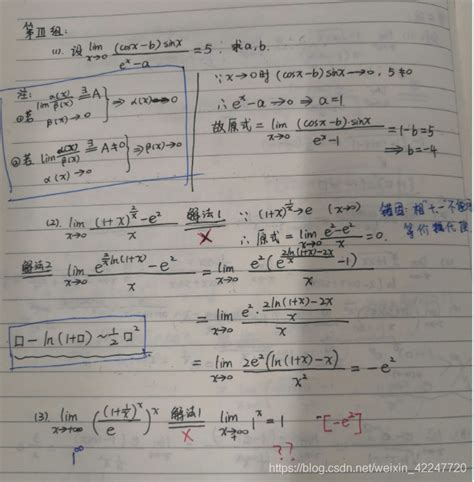 第Ⅲ组:
(1). 设 lim_{x→0} (cosx-b)sinx / (e^x-a) = 5, 求a,b.
注:
①若 lim α(x)/β(x) ∃= A, β(x)→0 } ⇒ α(x)→0
②若 lim α(x)/β(x) ∃= A≠0, α(x)→0 } ⇒ β(x)→0
∵ x→0时 (cosx-b)sinx→0, 5≠0
∴ e^x-a→0 ⇒ a=1
故原式 = lim_{x→0} (cosx-b)·sinx / (e^x-1) = 1-b=5
⇒ b=-4
(2). lim_{x→0} ((1+x)^{2/x}-e^2) / x 解法1 × ∵ (1+x)^{1/x}→e (x→0)
∴ 原式 = lim_{x→0} (e^2-e^2)/x = 0.
错因: 相"+、-"不
等价替代
解法2 lim_{x→0} (e^{2/x ln(1+x)}-e^2) / x = lim_{x→0} e^2(e^{(2ln(1+x)-2x)/x}-1) / x
= lim_{x→0} (e^2·(2ln(1+x)-2x)/x) / x
□-ln(1+□)~1/2□^2
= lim_{x→0} 2e^2(ln(1+x)-x) / x^2 = -e^2
(3) lim_{x→+∞} ((1+1/x)^x / e)^x 解法1 × lim_{x→+∞} 1^x = 1 -[-e^2]
1^∞ ??
https://blog.csdn.net/weixin_42247720